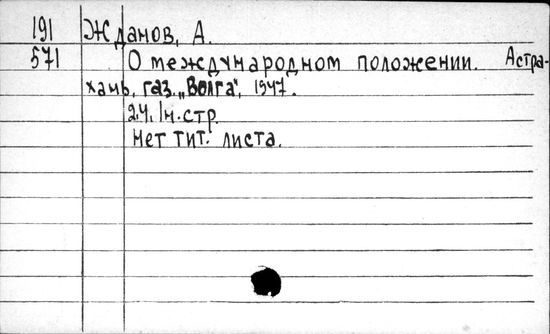 191 Жданов, А.
571 О международном положении. Астра-
хань, газ. „Волга", 1947.
24, 1н. стр.
Нет тит. листа.